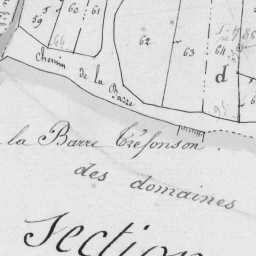 60 61
59
66
62
63
65
d
Chemin de la Barre
la Barre Trésonson
des domaines
Section